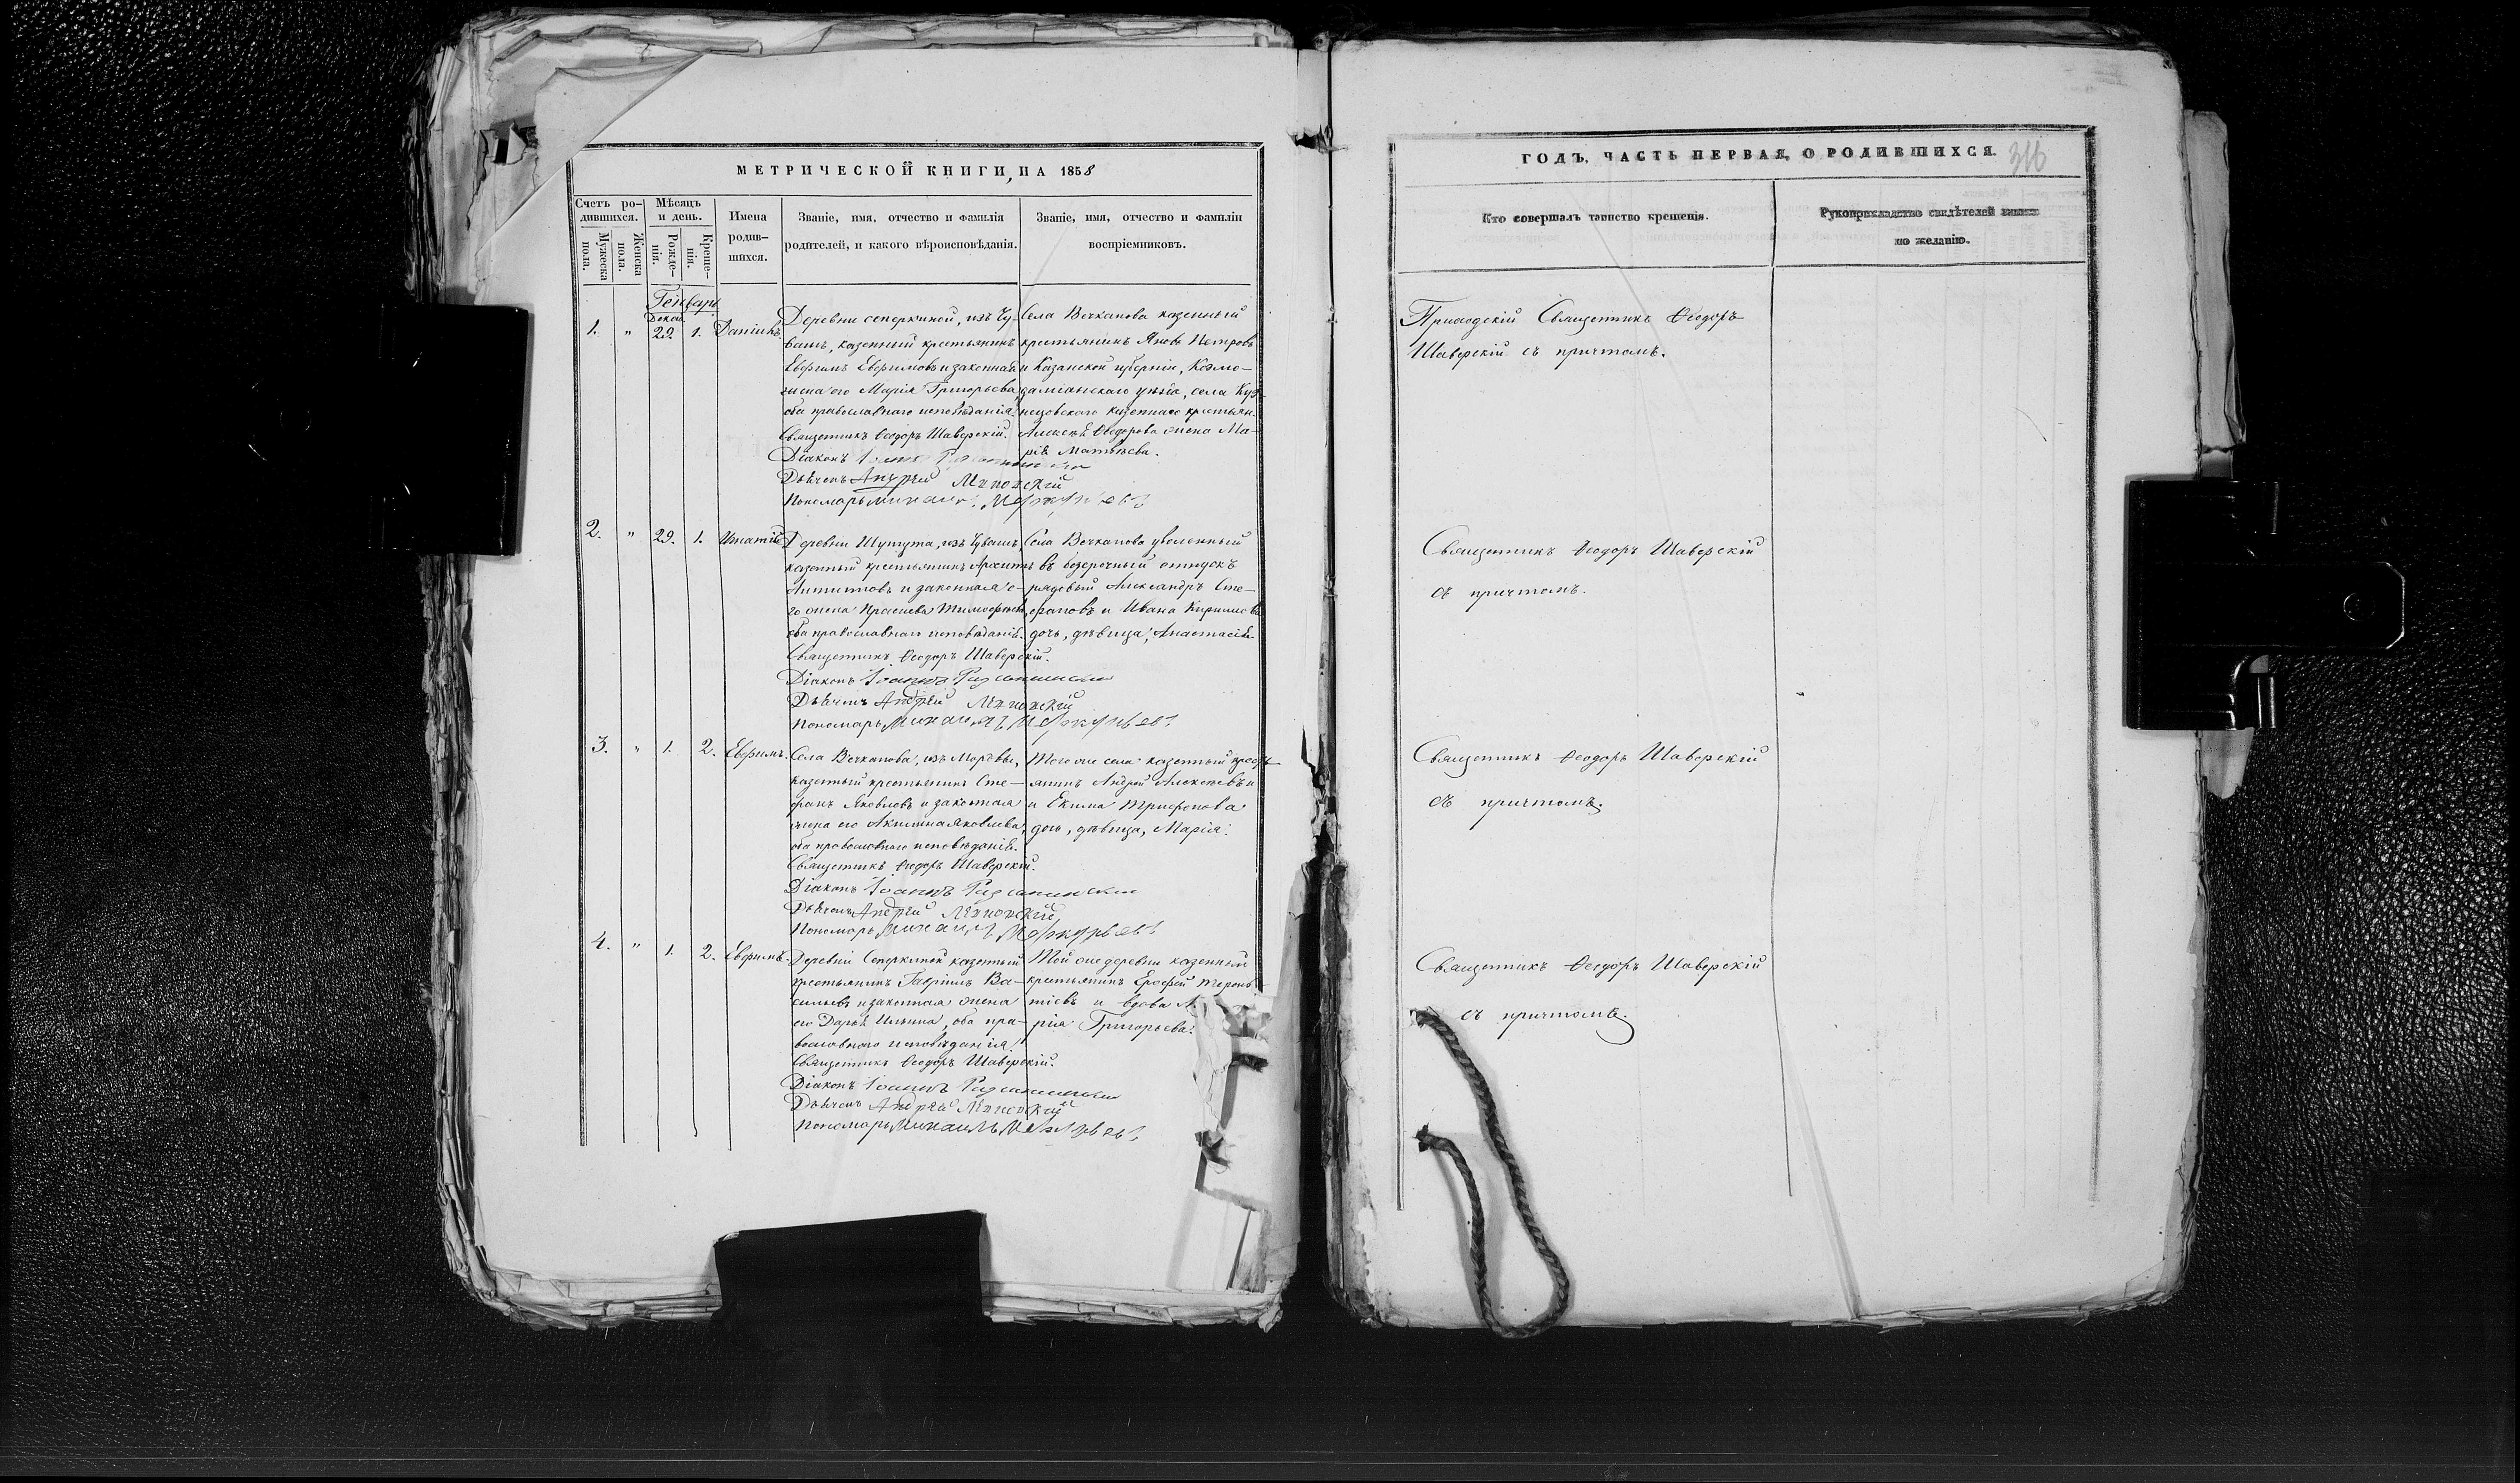 МЕТРИЧЕСКОЙ КНИГИ, НА 1858
Счетъ ро-
дившихся.
Мужеска
пола.
Женска
пола.
Мѣсяцъ
и день.
Рожде-
нія.
Креще-
нія.
Имена
родив-
шихся.
Званіе, имя, отчество и фамилія
родителей, и какого вѣроисповѣданія.
Званіе, имя, отчество и фамиліи
воспріемниковъ.
Генварь
Декаб.
1. " 29. 1. Даніилъ.
Деревни Сеперкиной, изъ Чу-
вашъ, казенный крестьянинъ
Евфимъ Евфимовъ и законная
жена его Марія Григорьева,
оба православнаго исповѣданія.
Священникъ Ѳеодоръ Шаверскій.
Діаконъ Іоаннъ
Дьячекъ Андрей
Пономарь Михаилъ Меркурьевъ
Села Вечканова казенный
крестьянинъ Яковъ Петровъ
и Казанской губерніи, Козмо-
даміанскаго уѣзда, села Куз-
нецовскаго казеннаго крестьян.
Алексѣя Ѳеодорова жена Ма-
рія Матвѣева.
2. " 29. 1. Игнатій
Деревни Шунгута, изъ Чувашъ,
казенный крестьянинъ Архипъ
Антиповъ и законная е-
го жена Прасковья Тимоѳеева,
оба православнаго исповѣданія.
Священникъ Ѳеодоръ Шаверскій.
Діаконъ Іоаннъ
Дьячекъ Андрей
Пономарь Михаилъ Меркурьевъ
Села Вечканова уволенный
въ безсрочный отпускъ
рядовый Александръ Сте-
фановъ и Ивана Кириллова
дочь, дѣвица, Анастасія.
3. " 1. 2. Евфимъ.
Села Вечканова, изъ Мордвы,
казенный крестьянинъ Сте-
фанъ Яковлевъ и законная
жена его Акилина Яковлева,
оба православнаго исповѣданія.
Священникъ Ѳеодоръ Шаверскій.
Діаконъ Іоаннъ
Дьячекъ Андрей
Пономарь Михаилъ Меркурьевъ
Того же села казенный крест
янинъ Андрей Алексѣевъ и
и Екима Трифонова
дочь, дѣвица, Марія.
4. " 1. 2. Евфимъ.
Деревни Сеперкиной казенный
крестьянинъ Гавріилъ Ва-
сильевъ и законная жена
его Дарья Ильина, оба пра-
вославнаго исповѣданія.
Священникъ Ѳеодоръ Шаверскій.
Діаконъ Іоаннъ
Дьячекъ Андрей
Пономарь Михаилъ Меркурьевъ
Той же деревни казенный
крестьянинъ Ерофей Терень-
тіевъ и вдова
рія Григорьева.
ГОДЪ. ЧАСТЬ ПЕРВАЯ, О РОДИВШИХСЯ.
316
Кто совершалъ таинство крещенія.
Рукоприкладство свидѣтелей записи
по желанію.
Приходскій Священникъ Ѳеодоръ
Шаверскій съ причтомъ.
Священникъ Ѳеодоръ Шаверскій
съ причтомъ.
Священникъ Ѳеодоръ Шаверскій
съ причтомъ.
Священникъ Ѳеодоръ Шаверскій
съ причтомъ.